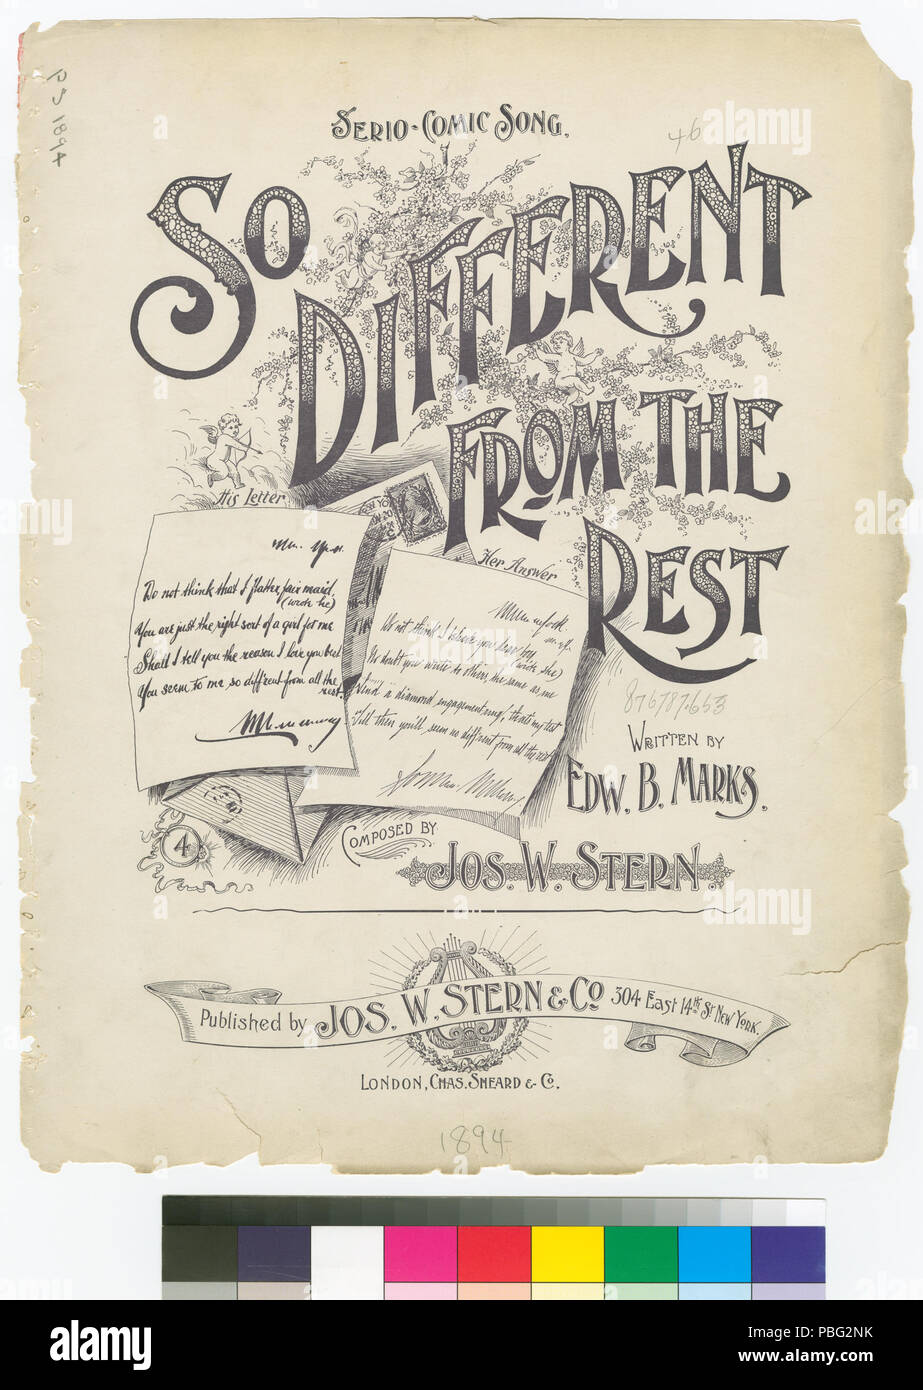 P J 1894
SERIO-COMIC SONG.
46
SO
DIFFERENT
FROM THE
REST
His Letter
Do not think that I flatter fair maid,
(wrote he)
You are just the right sort of a girl for me
Shall I tell you the reason I love you best
You seem to me so diff'rent from all the
rest.
Her Answer
Do not think I
you dear boy
(wrote she)
No doubt you write to others the same as me
Send a diamond engagement ring, that's my test
'Till then you'll seem no diff'rent from all the rest
876787.653
WRITTEN BY
EDW. B. MARKS.
4
COMPOSED BY
JOS. W. STERN.
Published by JOS. W. STERN & CO 304 East 14th St New York.
LONDON, CHAS. SHEARD & CO.
1894
alamy
alamy stock photo
PBG2NK
www.alamy.com